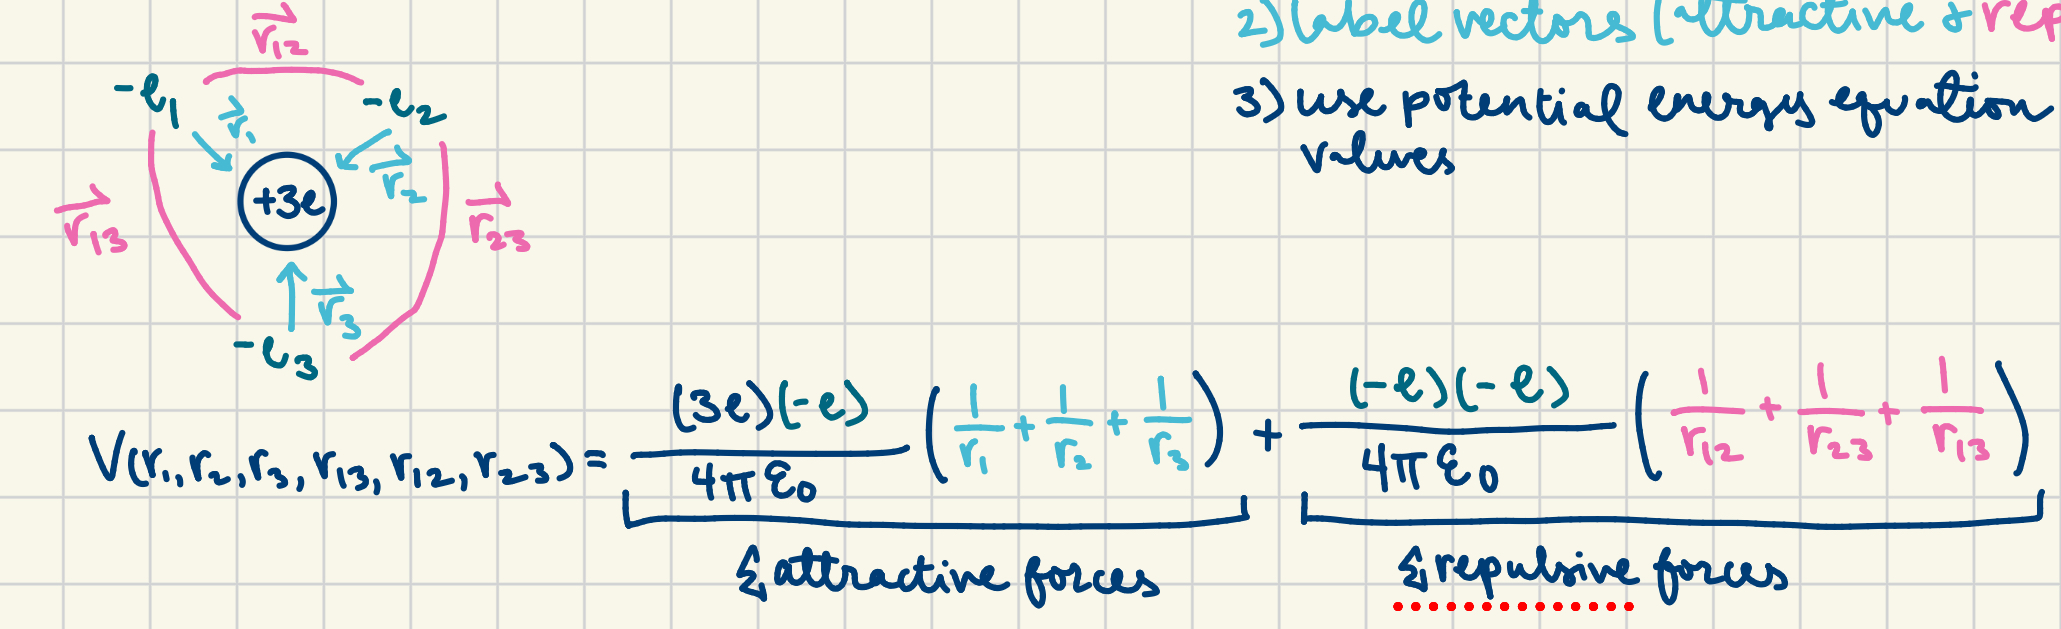 2) label vectors (attractive & rep
3) use potential energy equation
values
r₁₂
-e₁
-e₂
r₁
r₂
+3e
r₁₃
r₂₃
r₃
-e₃
V(r₁,r₂,r₃,r₁₃,r₁₂,r₂₃) = (3e)(-e)/4πε₀ (1/r₁ + 1/r₂ + 1/r₃) + (-e)(-e)/4πε₀ (1/r₁₂ + 1/r₂₃ + 1/r₁₃)
Σ attractive forces
Σ repulsive forces